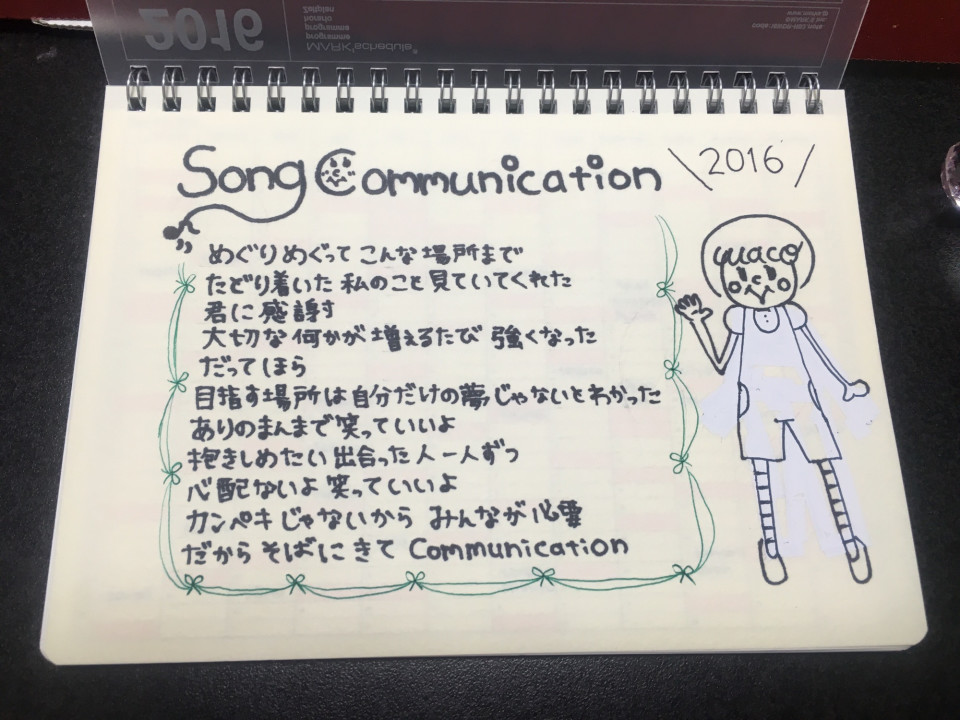 2016
MARK'schedule®
programma
programme
horario
Zeitplan
Song Communication
\2016/
めぐりめぐって こんな場所まで
たどり着いた 私のこと見ていてくれた
君に感謝す
大切な何かが増えるたび 強くなった
だってほら
目指す場所は自分だけの夢じゃないとわかった
ありのまんまで笑っていいよ
抱きしめたい出合った人一人ずつ
心配ないよ笑っていいよ
カンペキじゃないから みんなが必要
だから そばにきて Communication
guaco